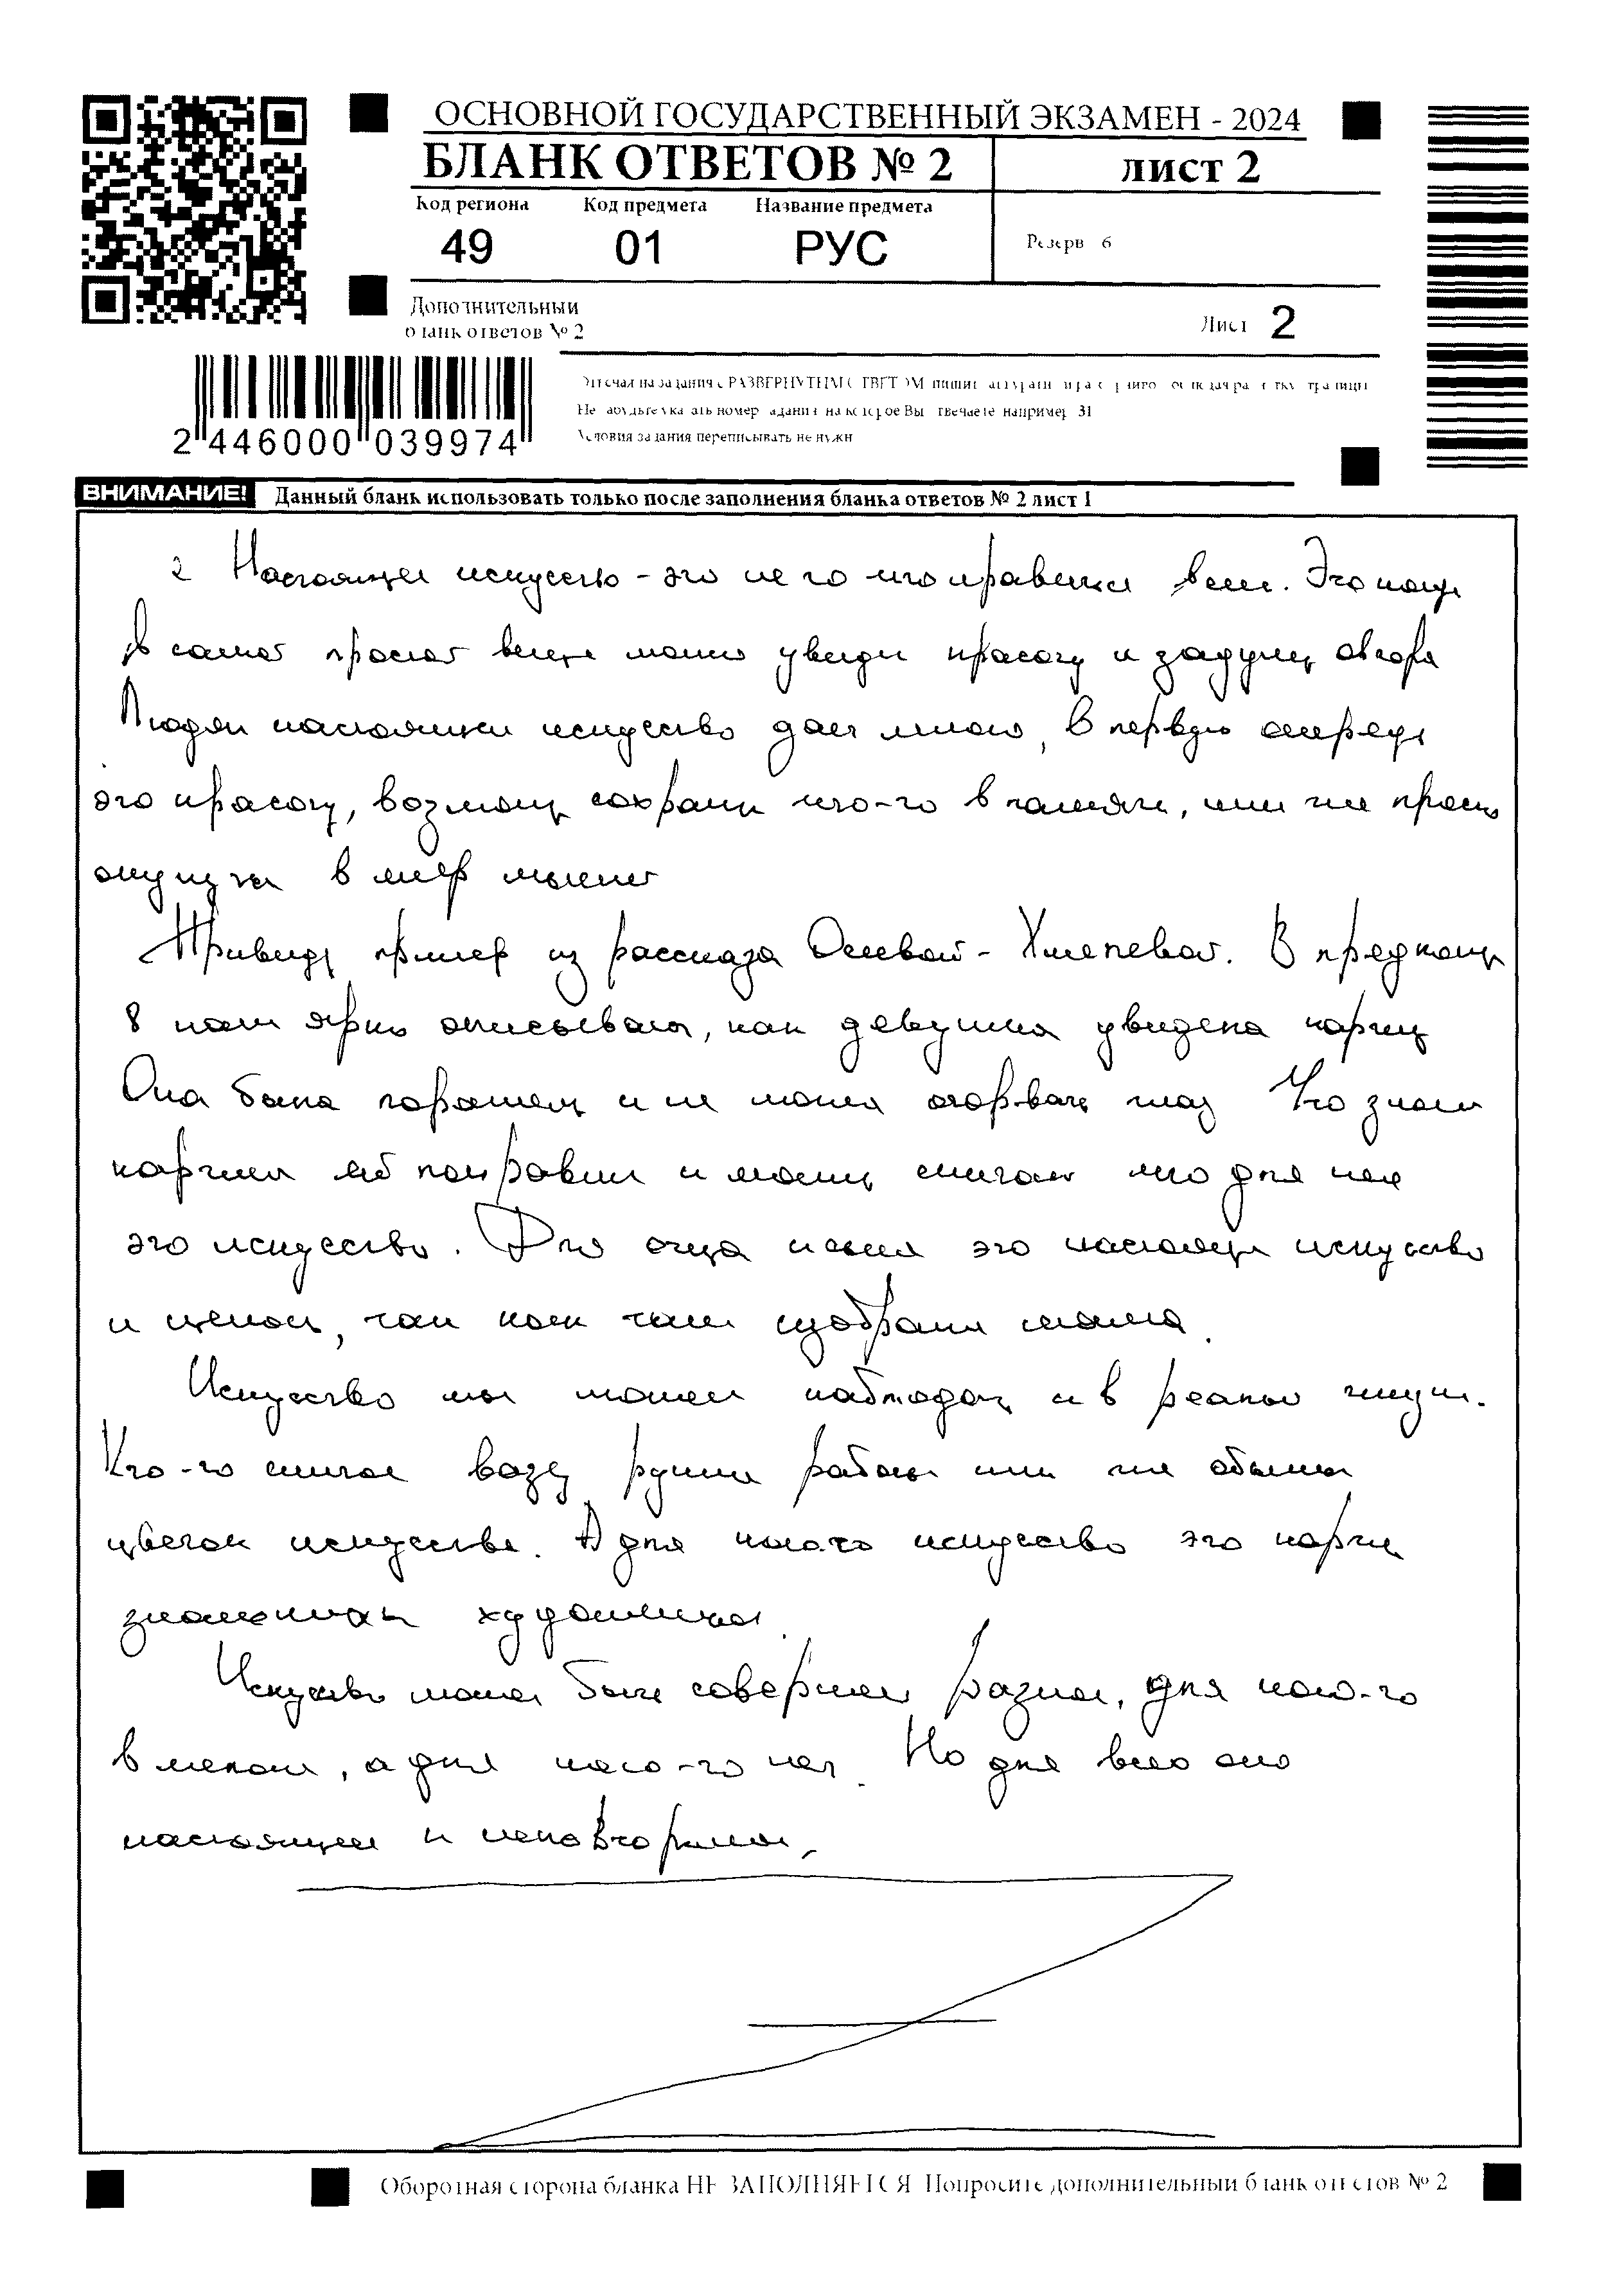 ОСНОВНОЙ ГОСУДАРСТВЕННЫЙ ЭКЗАМЕН - 2024
БЛАНК ОТВЕТОВ № 2
лист 2
Код региона Код предмета Название предмета
49 01 РУС
Резерв 6
Дополнительный
бланк ответов № 2
Лист 2
2 446000 039974
Условия задания переписывать не нужн
ВНИМАНИЕ! Данный бланк использовать только после заполнения бланка ответов № 2 лист 1
2 Настоящее искусство - это не то что нравится всем. Это когда
в самой простой вещи можно увидеть красоту и задумку автора
Людям настоящее искусство дает много, в первую очередь
это красоту, возможность сохранить что-то в памяти, или же просто
окунуться в мир мыслей
Приведу пример из рассказа Осеевой - Хмелевой. В предложении
8 нам ярко описывают, как девушка увидела картину
Она была поражена и не могла оторвать глаз Что значит
картина ей понравилась и можно считать что для нее
это искусство. Для отца и сына это настоящее искусство
и ценность, так как там изображена мама.
Искусство мы можем наблюдать и в реальной жизни.
Кто-то считает вазу ручной работы или же обычный
цветок искусством. А для кого-то искусство это картины
знаменитых художников.
Искусство может быть совершенно разным, для кого-то
в мелочах, а для кого-то нет. Но для всех оно
настоящее и неповторимое.
Оборотная сторона бланка НЕ ЗАПОЛНЯЕТСЯ Попросите дополнительный бланк ответов № 2